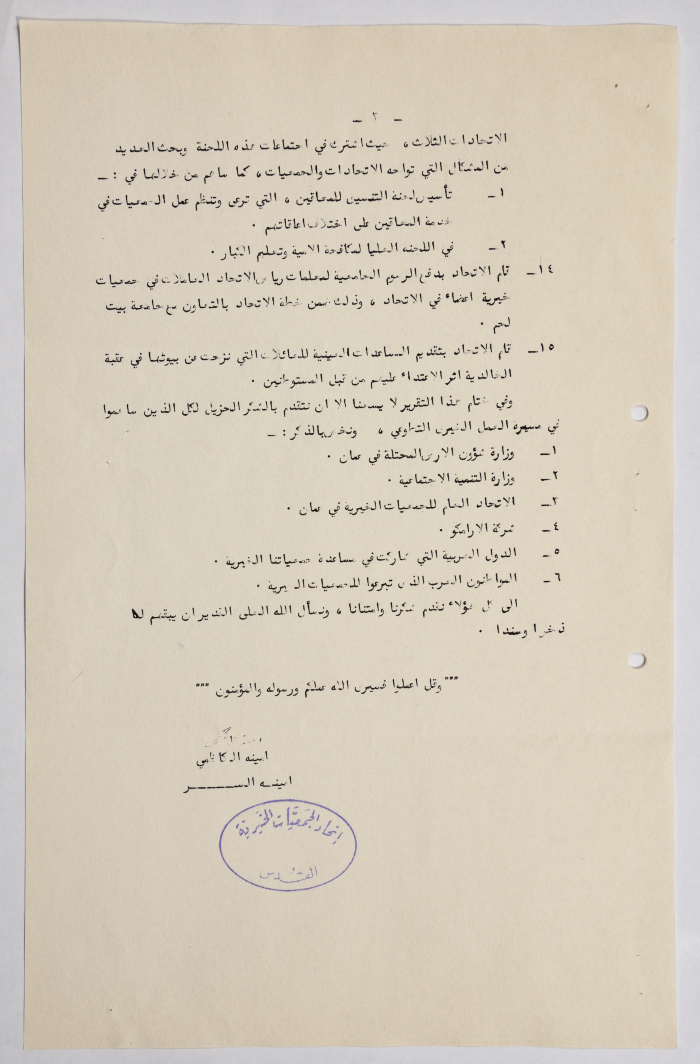 ـ ٣ ـ
الاتحادات الثلاث ، حيث اشترك في اجتماعات هذه اللجنة وبحث العديد
من المشاكل التي تواجه الاتحادات والجمعيات ، كما ساهم من خلالها في : ـ
١ ـ تأسيس لجنة التنسيق للمعاقين ، التي ترعى وتنظم عمل الجمعيات في
خدمة المعاقين على اختلاف اعاقاتهم .
٢ ـ في اللجنه العليا لمكافحة الامية وتعليم الكبار .
١٤ـ قام الاتحاد بدفع الرسوم الجامعية لمعلمات رياض الاتحاد العاملات في جمعيات
خيرية اعضاء في الاتحاد ، وذلك ضمن خطة الاتحاد بالتعاون مع جامعة بيت
لحم .
١٥ـ قام الاتحاد بتقديم المساعدات العينية للعائلات التي نزحت عن بيوتها في عقبة
الخالدية اثر الاعتداء عليهم من قبل المستوطنين .
وفي ختام هذا التقرير لا يسعنا الا ان نتقدم بالشكر الجزيل لكل الذين ساهموا
في مسيره العمل الخيري التطوعي ، ونخص بالذكر : ـ
١ـ وزارة شؤون الارض المحتلة في عمان .
٢ـ وزارة التنمية الاجتماعية .
٣ـ الاتحاد العام للجمعيات الخيرية في عمان .
٤ـ شركة الارامكو .
٥ـ الدول العربية التي شاركت في مساعدة جمعياتنا الخيرية .
٦ـ المواطنون العرب الذين تبرعوا للجمعيات الخيرية .
الى كل هؤلاء نقدم شكرنا وامتناننا ، ونسأل الله العلي القدير ان يبقهم لنا
ذخرا وسندا .
""" وقل اعملوا فسيرى الله عملكم ورسوله والمؤمنون """
امينه الكاظمي
امينــه الســـــر
اتحاد الجمعيات الخيرية
القدس